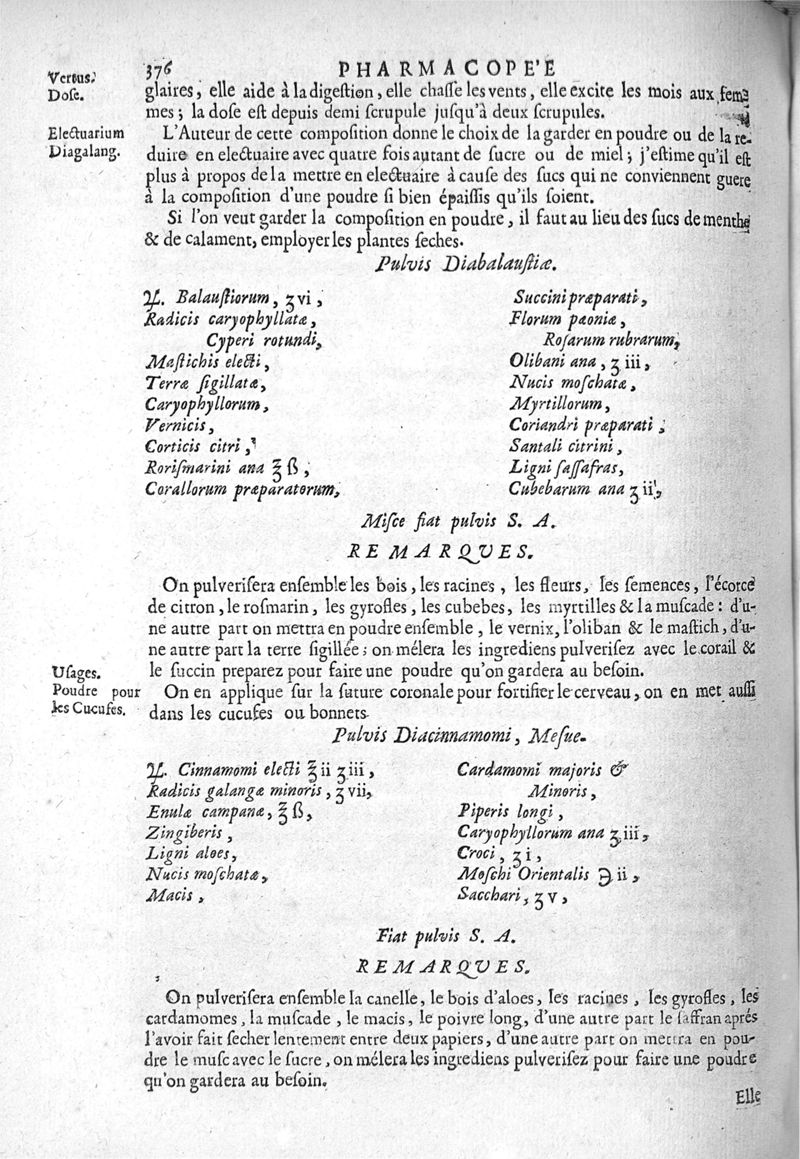 376 PHARMACOPE'E
Vertus.
Dose.
glaires, elle aide à la digestion, elle chasse les vents, elle excite les mois aux fem-
mes; la dose est depuis demi scrupule jusqu'à deux scrupules.
Electuarium
Diagalang.
L'Auteur de cette composition donne le choix de la garder en poudre ou de la re-
duire en electuaire avec quatre fois autant de sucre ou de miel; j'estime qu'il est
plus à propos de la mettre en electuaire à cause des sucs qui ne conviennent guere
à la composition d'une poudre si bien épaissis qu'ils soient.
Si l'on veut garder la composition en poudre, il faut au lieu des sucs de menthe
& de calament, employer les plantes seches.
Pulvis Diabalaustiæ.
♃. Balaustiorum, ʒvi,
Radicis caryophyllatæ,
Cyperi rotundi,
Mastichis electi,
Terræ sigillatæ,
Caryophyllorum,
Vernicis,
Corticis citri,
Rorismarini ana ℥ß,
Corallorum præparatorum,
Succini præparati,
Florum pæoniæ,
Rosarum rubrarum,
Olibani ana, ʒiii,
Nucis moschatæ,
Myrtillorum,
Coriandri præparati,
Santali citrini,
Ligni sassafras,
Cubebarum ana ʒii,
Misce fiat pulvis S. A.
REMARQVES.
On pulverisera ensemble les bois, les racines, les fleurs, les semences, l'écorce
de citron, le rosmarin, les gyrofles, les cubebes, les myrtilles & la muscade: d'u-
ne autre part on mettra en poudre ensemble, le vernix, l'oliban & le mastich, d'u-
ne autre part la terre sigillée; on mélera les ingrediens pulverisez avec le corail &
le succin preparez pour faire une poudre qu'on gardera au besoin.
Usages.
Poudre pour
les Cucufes.
On en applique sur la suture coronale pour fortifier le cerveau, on en met aussi
dans les cucufes ou bonnets
Pulvis Diacinnamomi, Mesue.
♃. Cinnamomi electi ℥ii ʒiii,
Radicis galangæ minoris, ʒvii,
Enulæ campanæ, ℥ß,
Zingiberis,
Ligni aloes,
Nucis moschatæ,
Macis,
Cardamomi majoris &
Minoris,
Piperis longi,
Caryophyllorum ana ʒiii,
Croci, ʒi,
Moschi Orientalis ℈ii,
Sacchari, ʒv,
Fiat pulvis S. A.
REMARQVES.
On pulverisera ensemble la canelle, le bois d'aloes, les racines, les gyrofles, les
cardamomes, la muscade, le macis, le poivre long, d'une autre part le saffran aprés
l'avoir fait secher lentement entre deux papiers, d'une autre part on mettra en pou-
dre le musc avec le sucre, on mélera les ingrediens pulverisez pour faire une poudre
qu'on gardera au besoin.
Elle